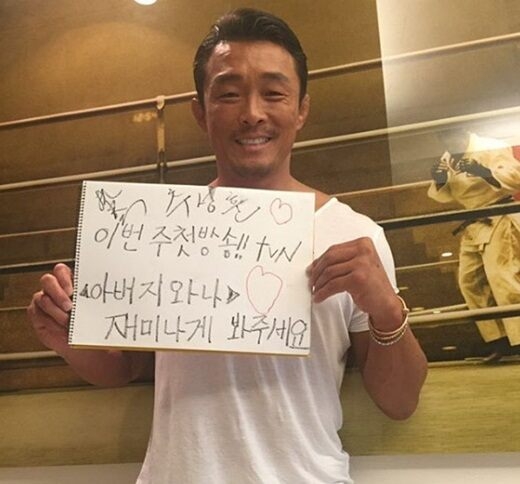 이번 주첫방송!! tvN
<아버지와나>
재미나게 봐주세요